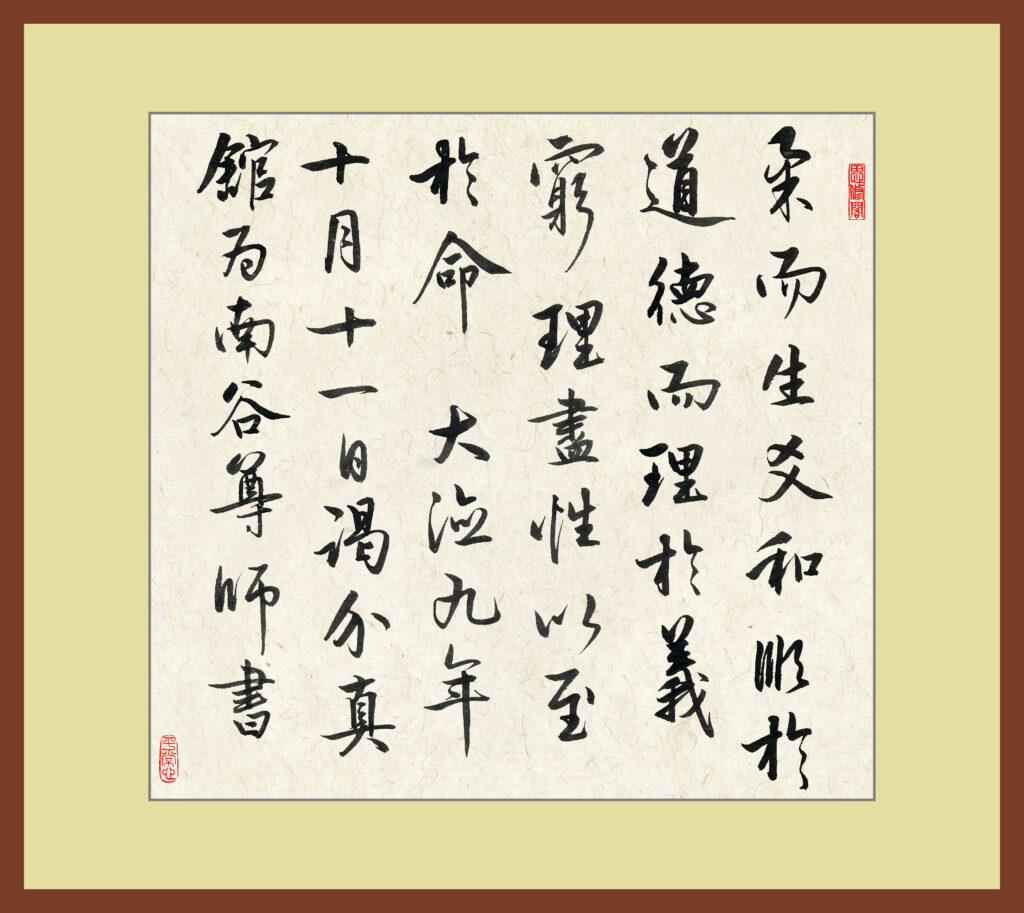 思修閣
柔而生爻和順於
道德而理於義
窮理盡性以至
於命 大德九年
十月十一日謁分真
館為南谷尊師書
平常心